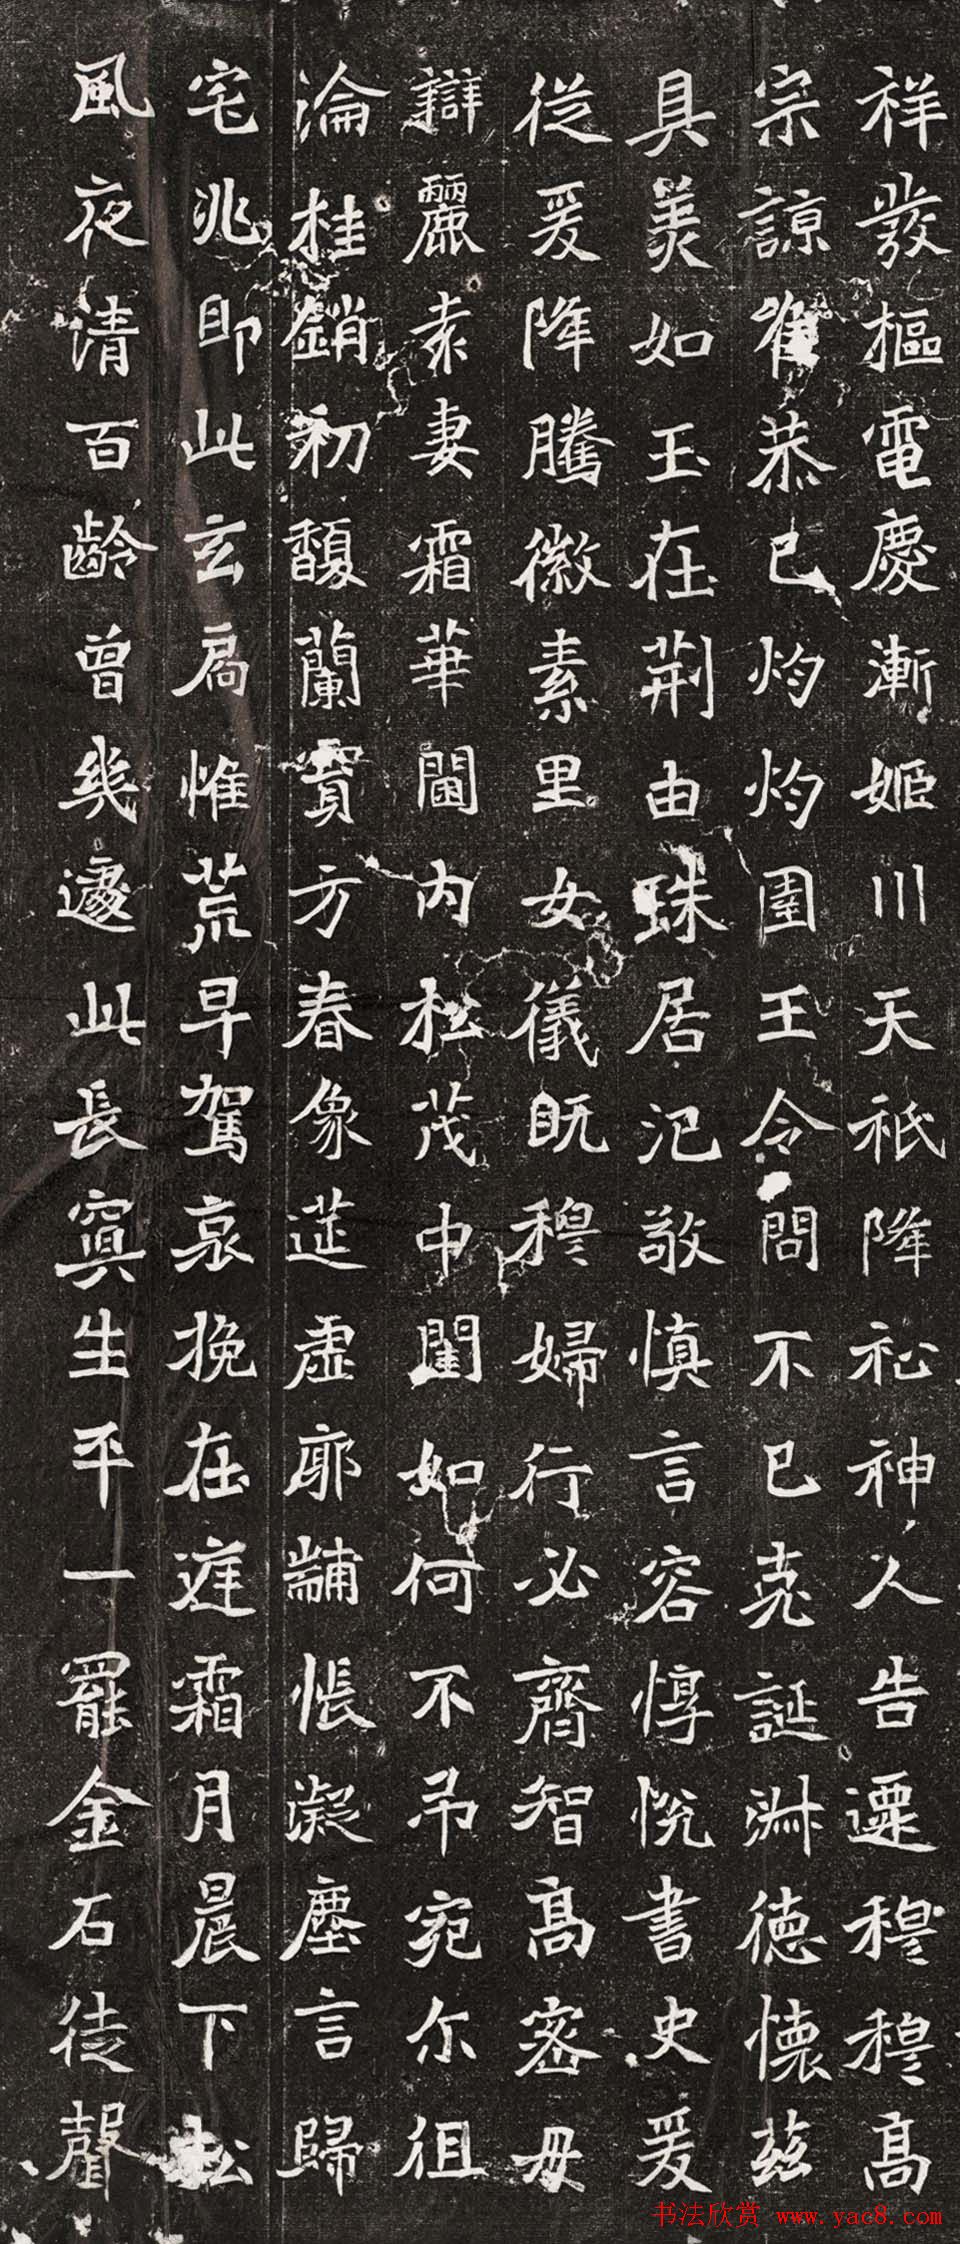 祥發樞電慶漸姬川天祇降祉神人告遷穆穆高
宗諒唯恭己灼灼園王令問不已克誕淑德懷茲
具美如玉在荊由珠居汜敬慎言容惇悅書史爰
從爰降騰徽素里女儀既穆婦行必齊智高密母
辯麗萊妻霜華閫内松茂中閨如何不弔宛尔徂
淪桂銷初馥蘭實方春象筵虛廓黼帳凝塵言歸
宅兆即此玄扃惟荒早駕哀挽在庭霜月晨下松
風夜清百齡曾幾遽此長冥生平一罷金石徒聲
书法欣赏 www.yac8.com